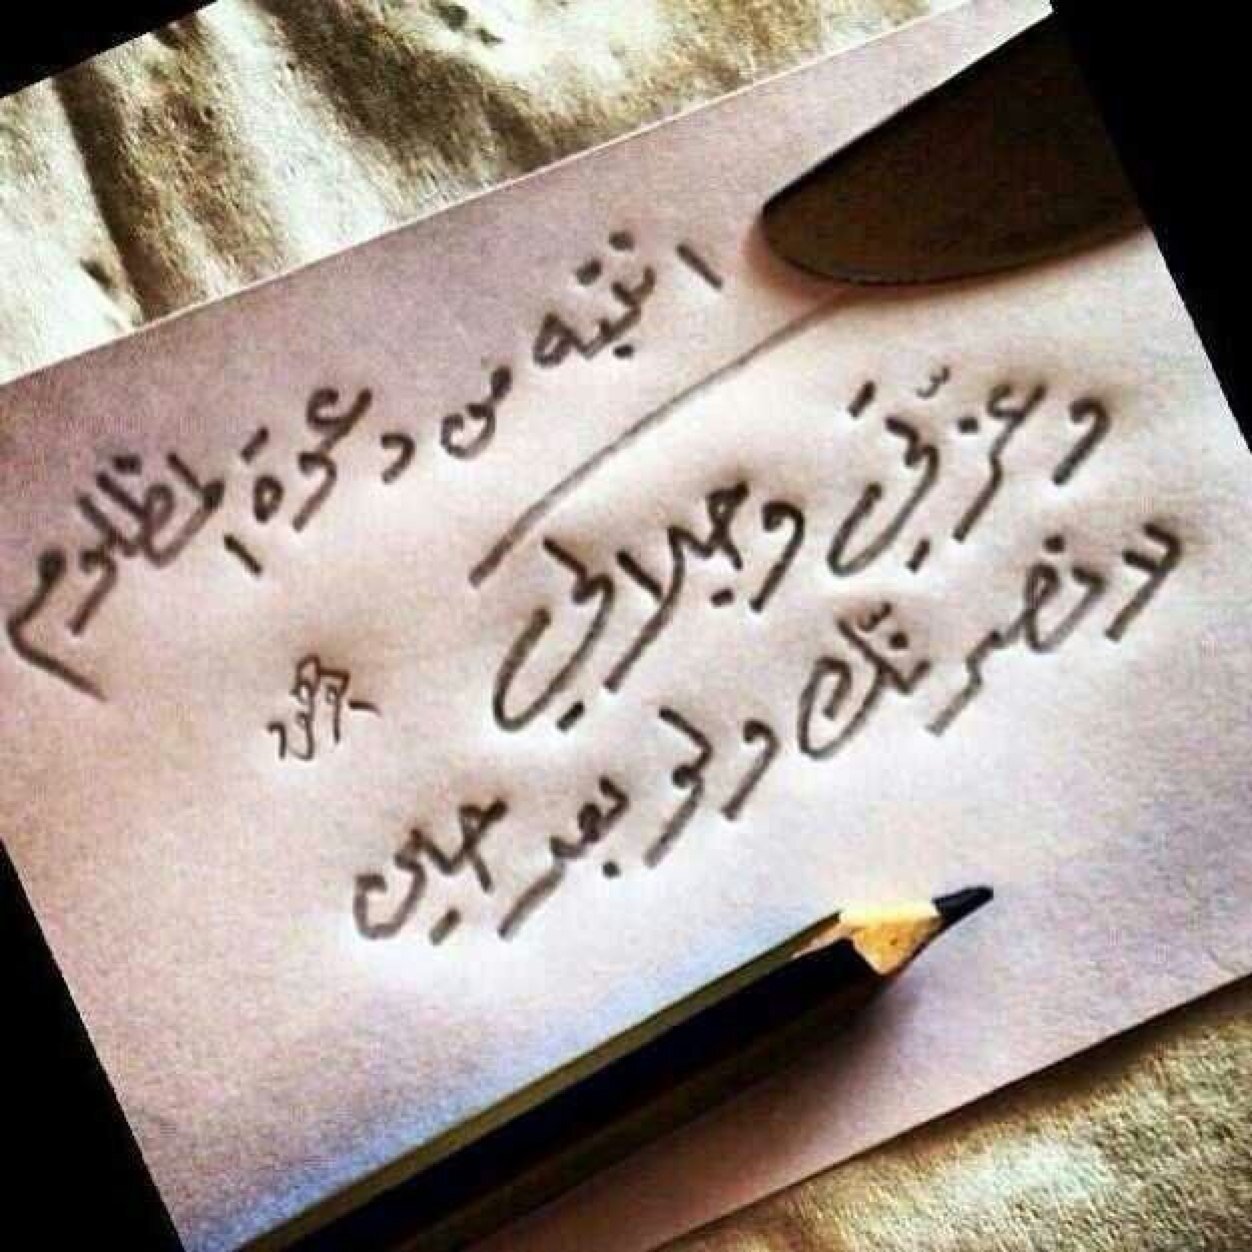 انتبه من دعوة المظلوم
وعزّتي وجلالي
لانصرنّك ولو بعد حين